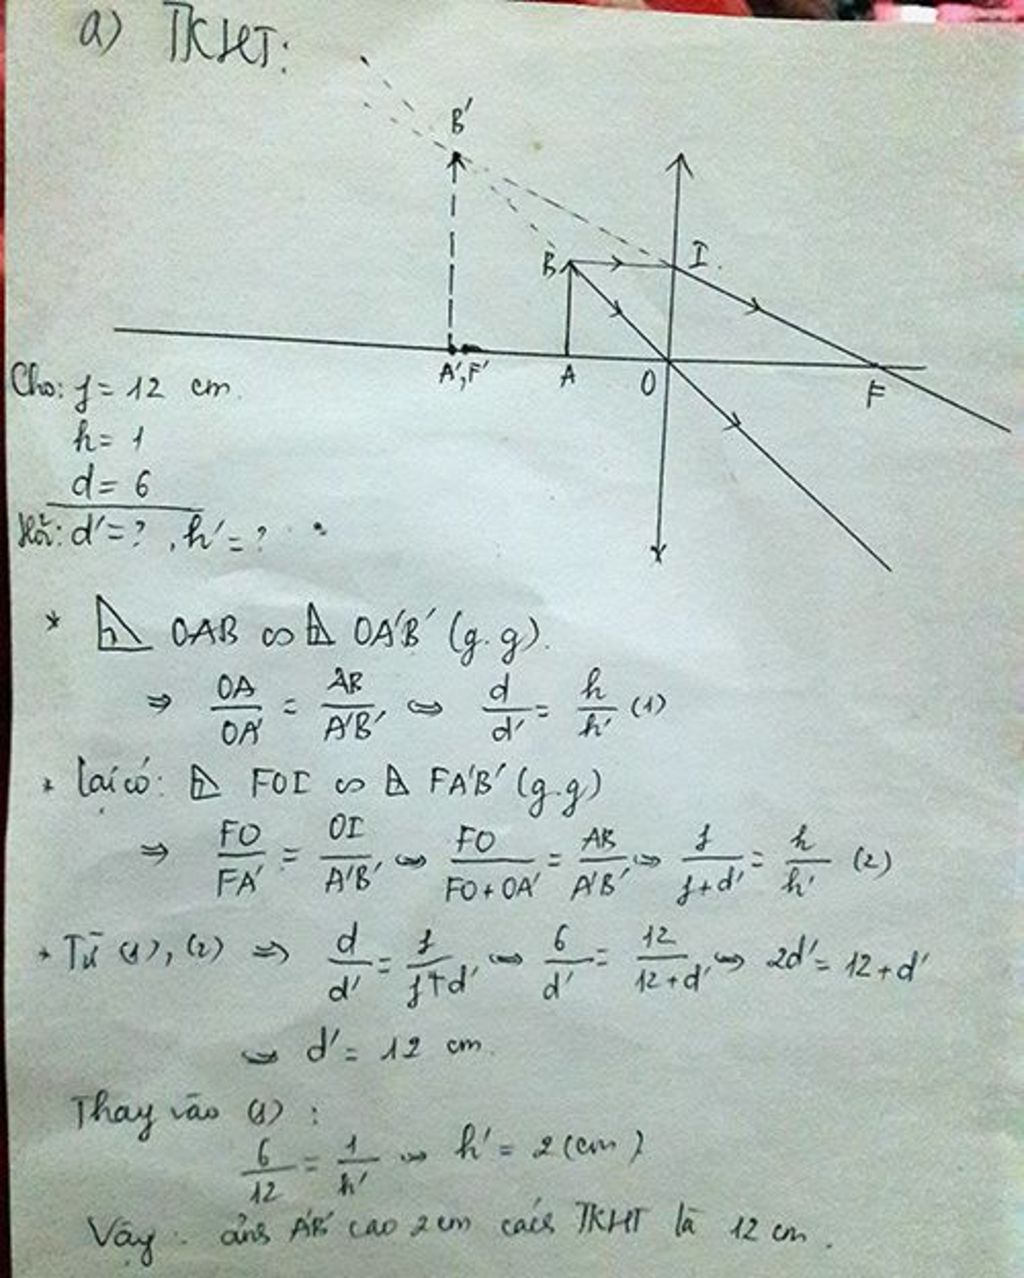 a) TKHT:
B'
B I
A',F' A O F
Cho: f = 12 cm.
h = 1
d = 6
Hỏi: d' = ? , h' = ?
* ⊿ OAB ∽ ⊿ OA'B' (g.g).
⇒ OA/OA' = AB/A'B' ⇔ d/d' = h/h' (1)
* Lại có: ⊿ FOI ∽ ⊿ FA'B' (g.g)
⇒ FO/FA' = OI/A'B' ⇔ FO/FO+OA' = AB/A'B' ⇔ f/f+d' = h/h' (2)
* Từ (1), (2) ⇒ d/d' = f/f+d' ⇔ 6/d' = 12/12+d' ⇔ 2d' = 12+d'
⇔ d' = 12 cm.
Thay vào (1) :
6/12 = 1/h' ⇔ h' = 2 (cm)
Vậy : ảnh A'B' cao 2 cm cách TKHT là 12 cm.